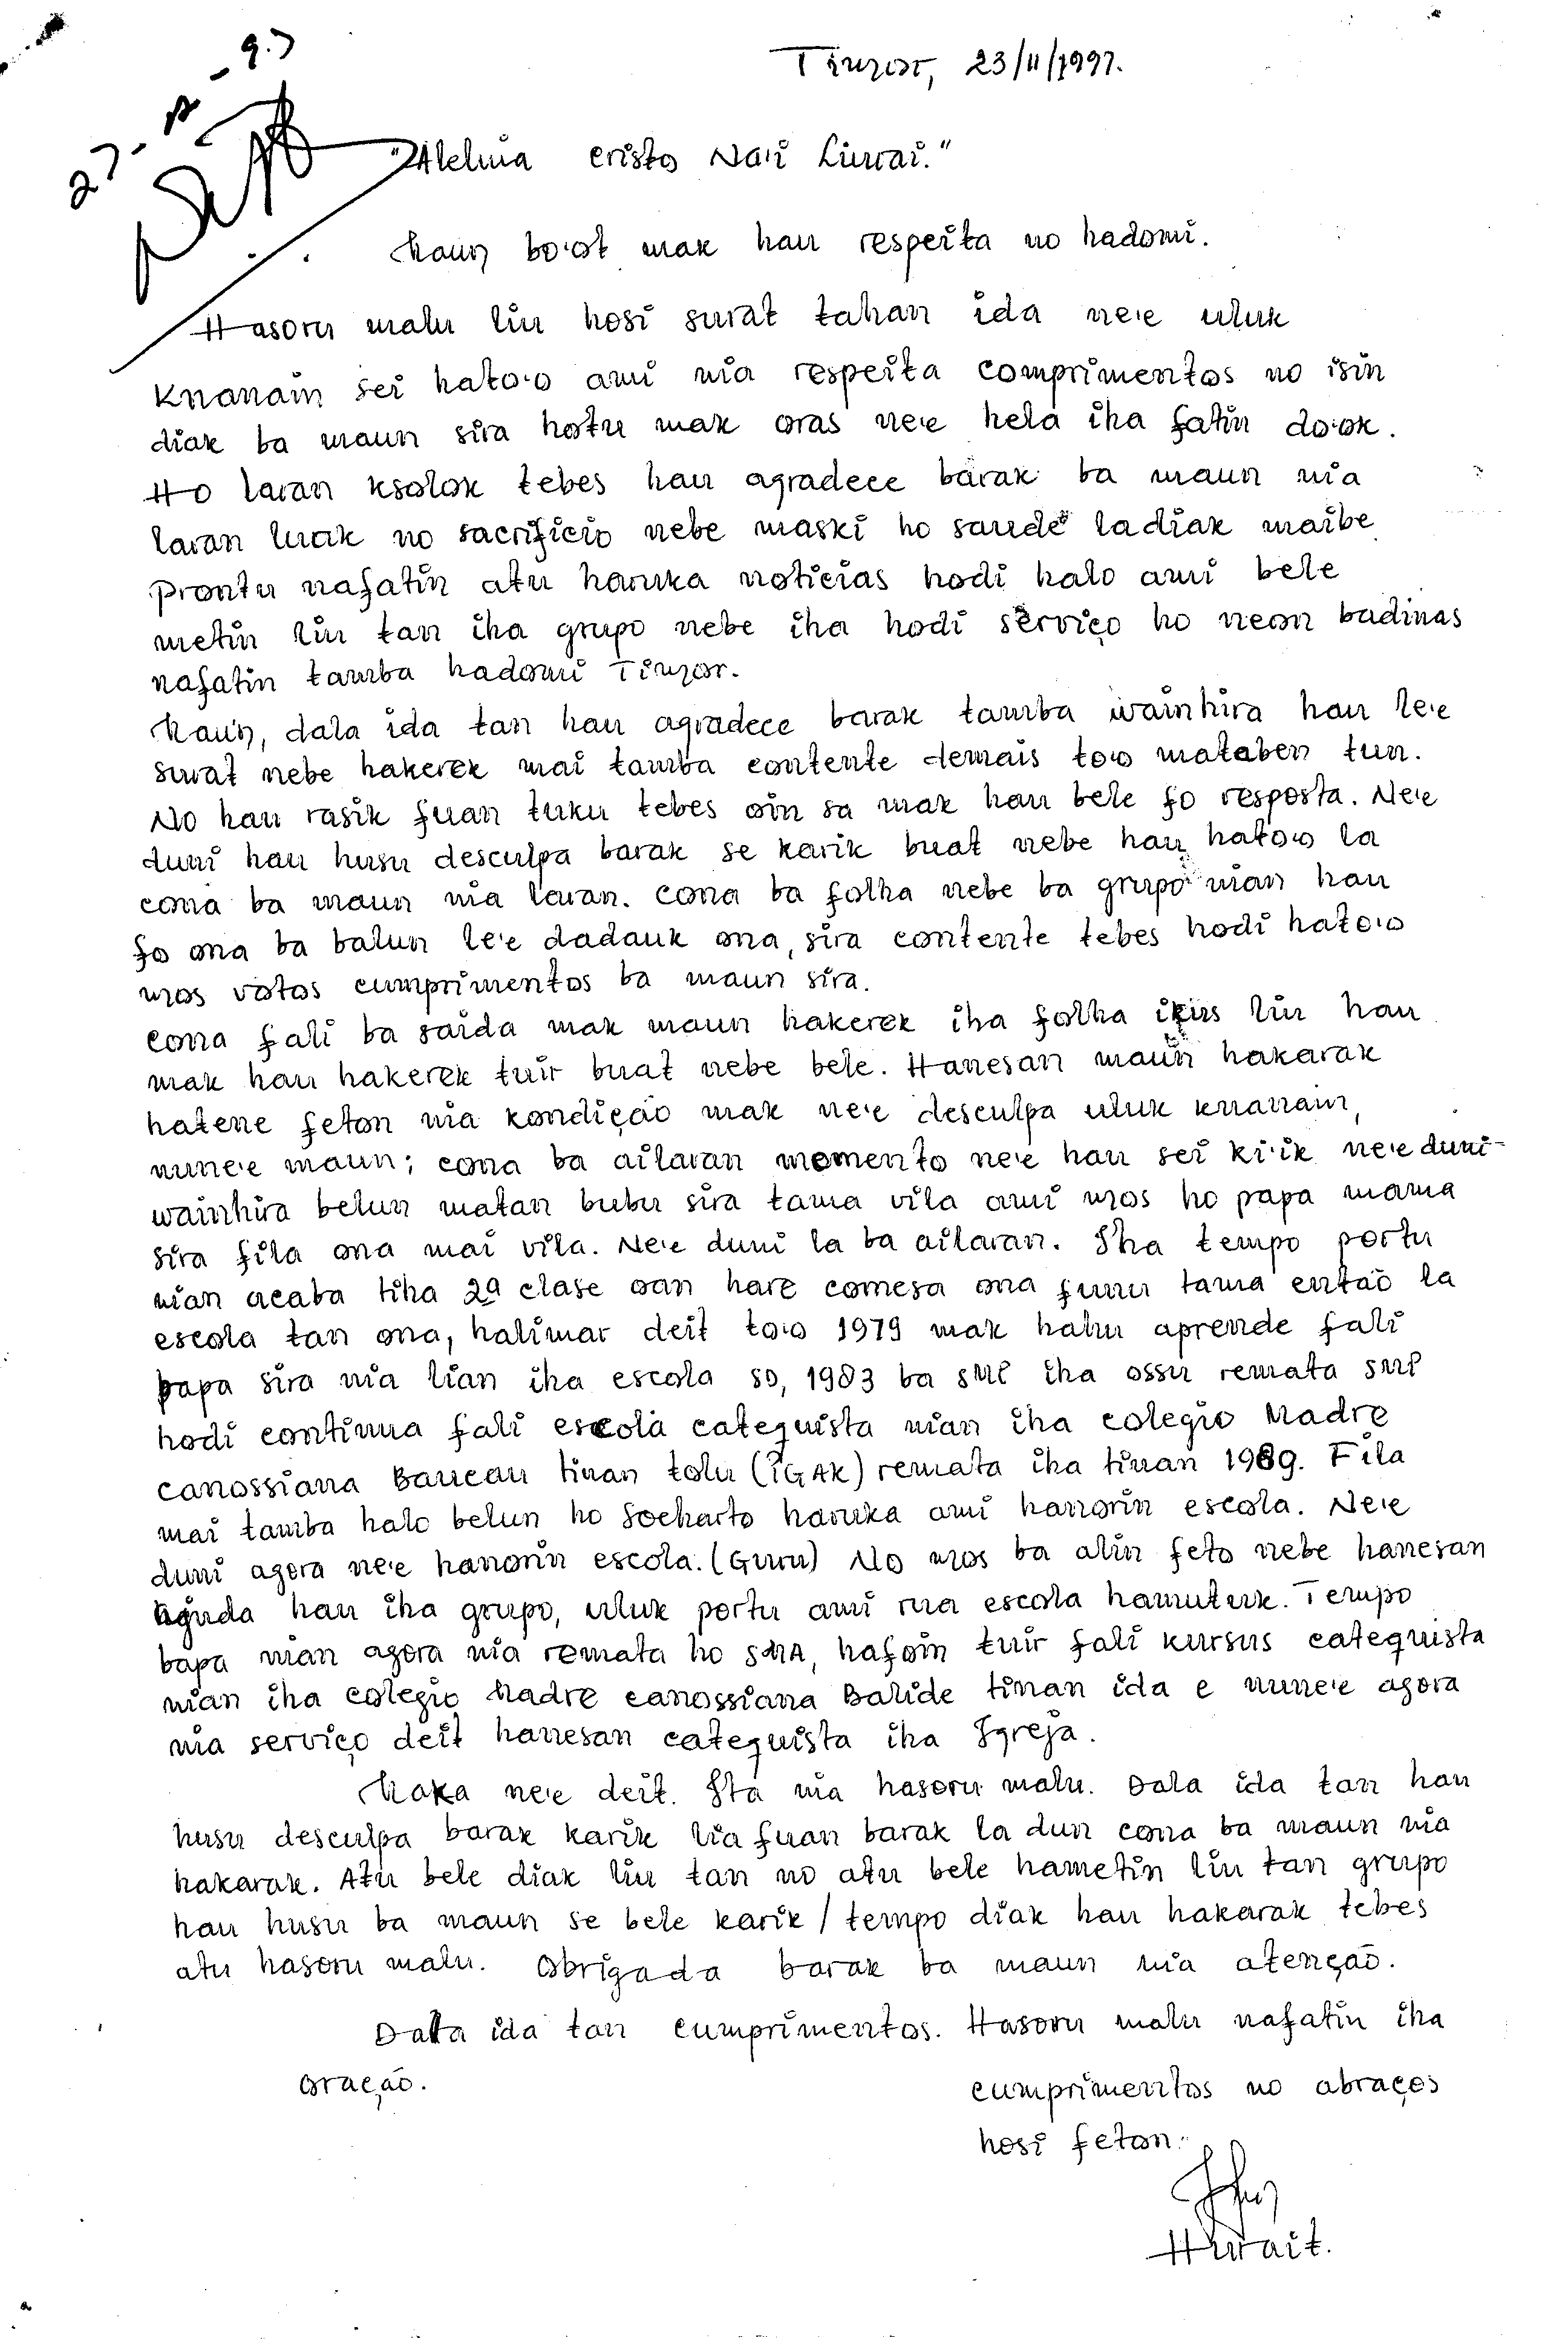 27-12-97
Timor, 23/11/1997.
"Aleluia Cristo Na'i Liurai."
Maun bo'ot mak hau respeita no hadomi.
Hasoru malu liu hosi surat tahan ida ne'e uluk
knanain sei hato'o ami nia respeita comprimentos no isin
diak ba maun sira hotu mak oras ne'e hela iha fatin do'ok.
Ho laran ksolok tebes hau agradece barak ba maun nia
laran luak no sacrificio nebe maski ho saude ladiak maibe
prontu nafatin atu haruka noticias hodi halo ami bele
metin liu tan iha grupo nebe iha hodi serviço ho neon badinas
nafatin tamba hadomi Timor.
Maun, dala ida tan hau agradece barak tamba wainhira hau le'e
surat nebe hakerek mai tamba contente demais to'o mataben tun.
No hau rasik fuan tuku tebes oin sa mak hau bele fo resposta. Ne'e
duni hau husu desculpa barak se karik buat nebe hau hato'o la
cona ba maun nia laran. Cona ba folha nebe ba grupo nian hau
fo ona ba balun le'e dadauk ona, sira contente tebes hodi hato'o
mos votos cumprimentos ba maun sira.
Cona fali ba saida mak maun hakerek iha folha ikus liu hau
mak hau hakerek tuir buat nebe bele. Hanesan maun hakarak
hatene feton nia kondição mak ne'e desculpa uluk knanain,
nune'e maun; cona ba ailaran momento ne'e hau sei ki'ik ne'e duni-
wainhira belun matan bubu sira tama vila ami mos ho papa mama
sira fila ona mai vila. Ne'e duni la ba ailaran. Iha tempo portu
nian acaba tiha 2a clase oan hare comesa ona funu tama então la
escola tan ona, halimar deit to'o 1979 mak hahu aprende fali
papa sira nia lian iha escola SD, 1983 ba SMP iha Ossu remata SMP
hodi continua fali escola catequista nian iha colegio Madre
Canossiana Baucau tinan tolu (IGAK) remata iha tinan 1989. Fila
mai tamba halo belun ho Soeharto haruka ami hanorin escola. Ne'e
duni agora ne'e hanorin escola. (Guru) No mos ba alin feto nebe hanesan
ajuda hau iha grupo, uluk portu ami rua escola hamutuk. Tempo
bapa nian agora nia remata ho SMA, hafoin tuir fali kursus catequista
nian iha colegio Madre Canossiana Balide tinan ida e nune'e agora
nia serviço deit hanesan catequista iha Igreja.
Maka ne'e deit. Ita nia hasoru malu. Dala ida tan hau
husu desculpa barak karik lia fuan barak la dun cona ba maun nia
hakarak. Atu bele diak liu tan no atu bele hametin liu tan grupo
hau husu ba maun se bele karik / tempo diak hau hakarak tebes
atu hasoru malu. Obrigada barak ba maun nia atenção.
Dala ida tan cumprimentos. Hasoru malu nafatin iha
oração.
cumprimentos no abraços
hosi feton.
Hurait.